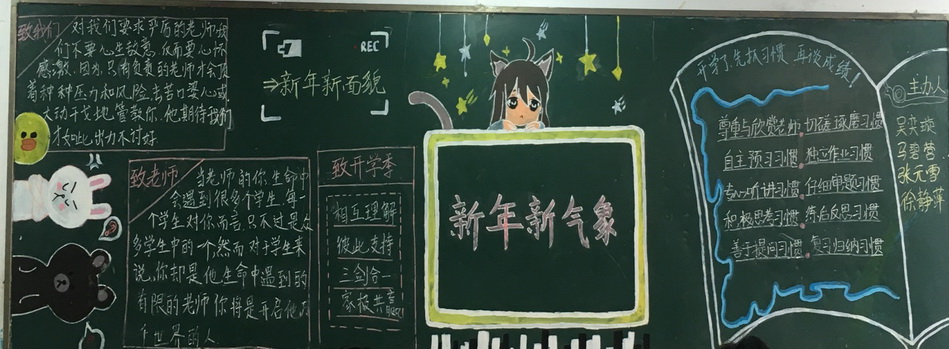 致我们
对我们要求严厉的老师,我
们不要心生敌意,反而要心怀
感激,因为,只有负责的老师才会顶
着种种压力和风险,去苦口婆心或
大动干戈地管教你,他期待我们
才如此出力不讨好.
REC
⇒新年新面貌
致老师
当老师的你,生命中
会遇到很多个学生,每一
个学生对你而言,只不过是众
多学生中的一个,然而对于学生来
说,你却是他生命中遇到的
有限的老师你将是开启他
个世界的人
致开学季
相互理解
彼此支持
三剑合一
家校共
新年新气象
开学了,先抓习惯,再谈成绩!
尊重与欣赏老师,切磋琢磨习惯
自主预习习惯,独立作业习惯
专心听讲习惯,仔细审题习惯
积极思考习惯,旁白反思习惯
善于提问习惯,复习归纳习惯
主办人
吴奕璇
马碧莹
张元雪
徐静萍